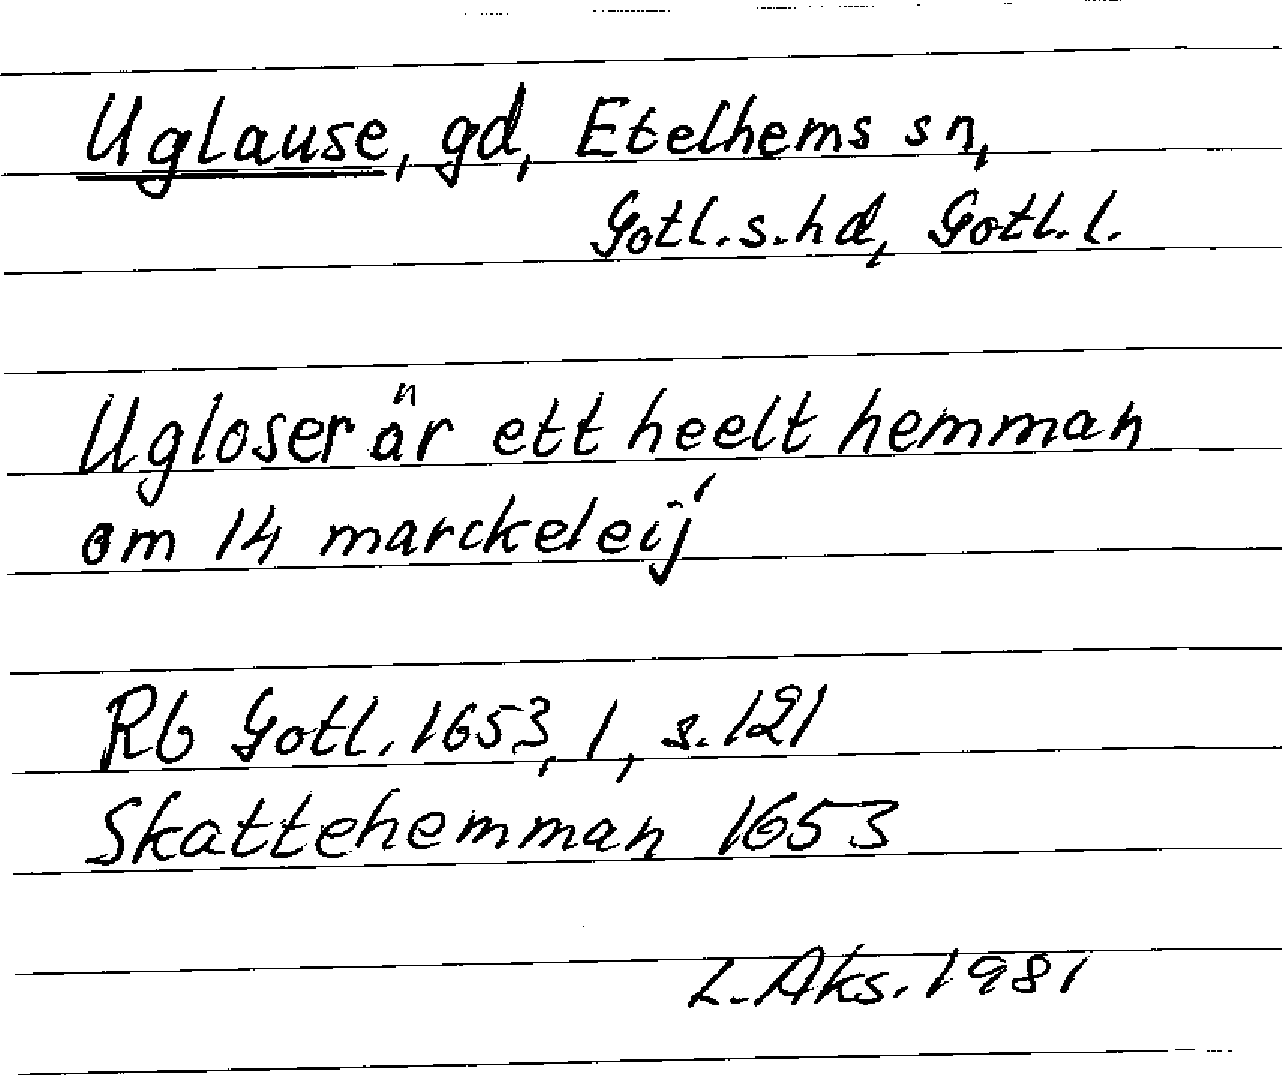 Uglause, gd, Etelhems sn,
Gotl. s. hd, Gotl. l.
Ugloser är ett heelt hemman
om 14 marckeleij
Rb Gotl. 1653, 1, s. 121
Skattehemman 1653
L. Aks. 1981